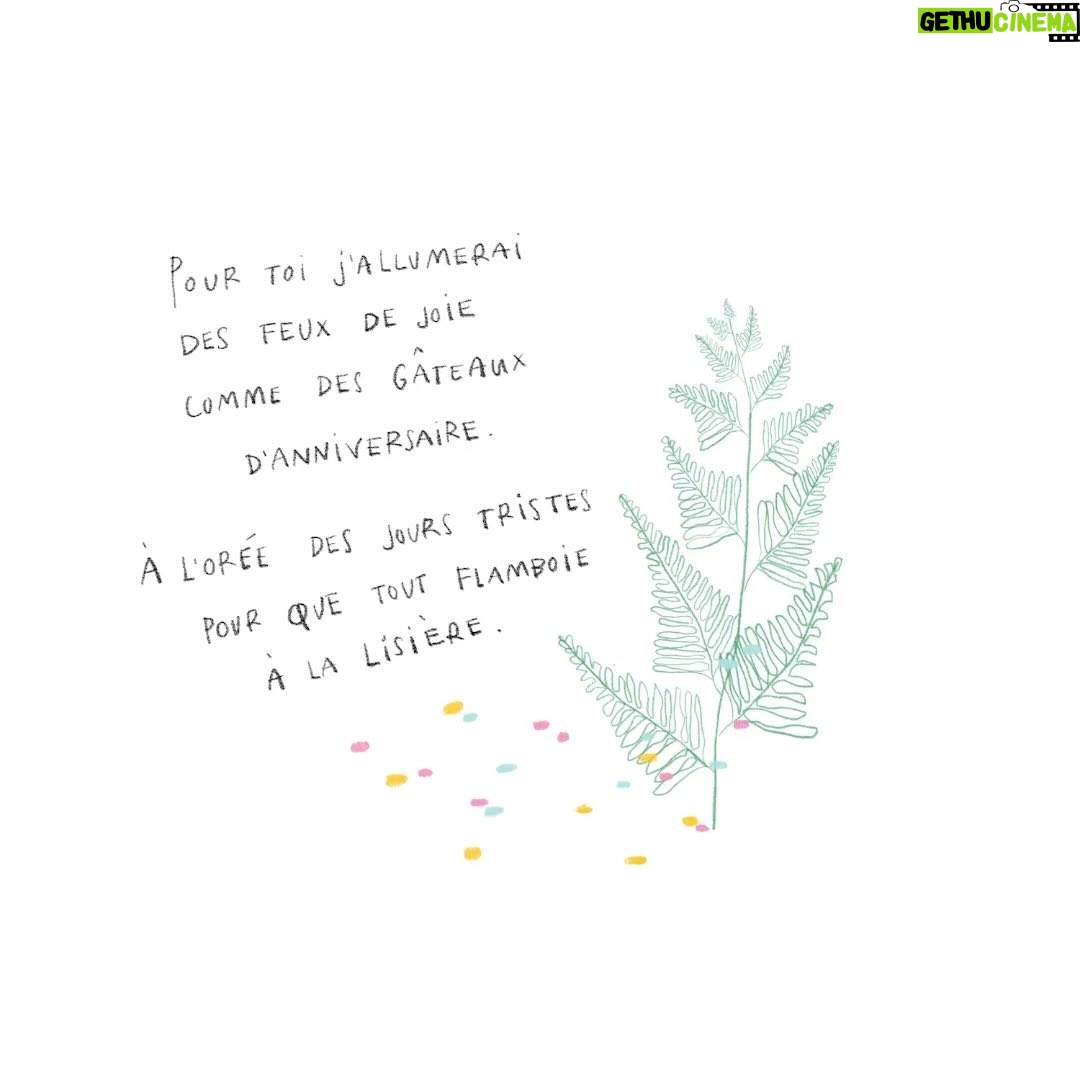 GETHUCINEMA
POUR TOI J'ALLUMERAI
DES FEUX DE JOIE
COMME DES GÂTEAUX
D'ANNIVERSAIRE.
À L'ORÉE DES JOURS TRISTES
POUR QUE TOUT FLAMBOIE
À LA LISIÈRE.